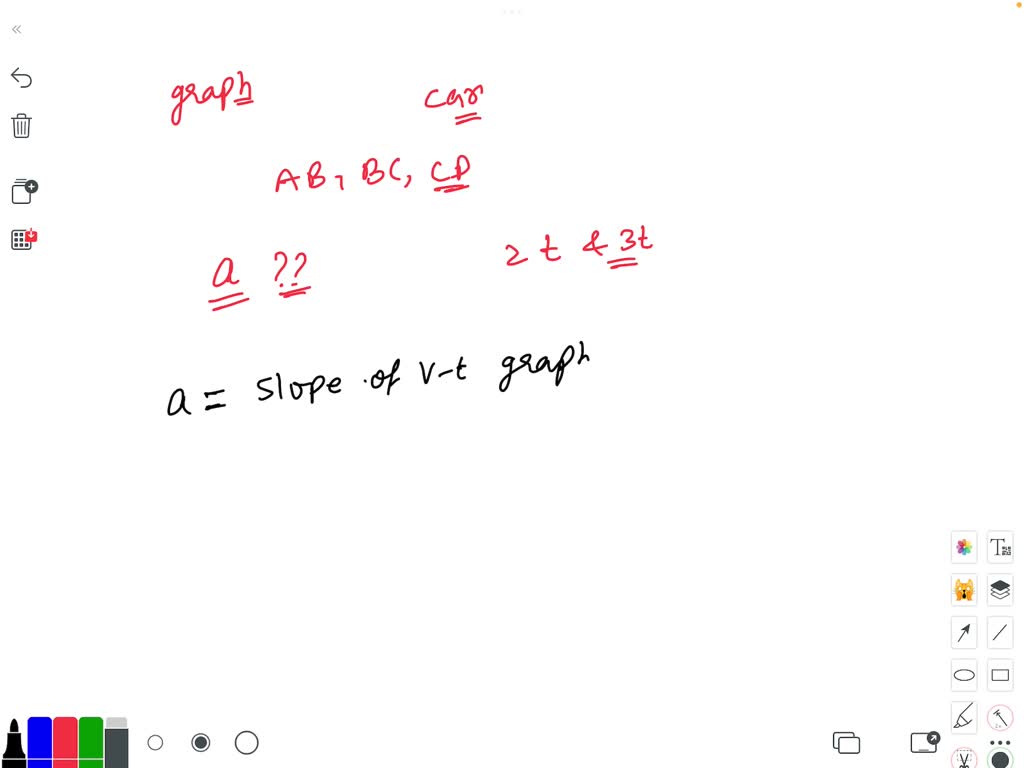 graph car
AB, BC, CD
a ?? 2t & 3t
a = slope of v-t graph